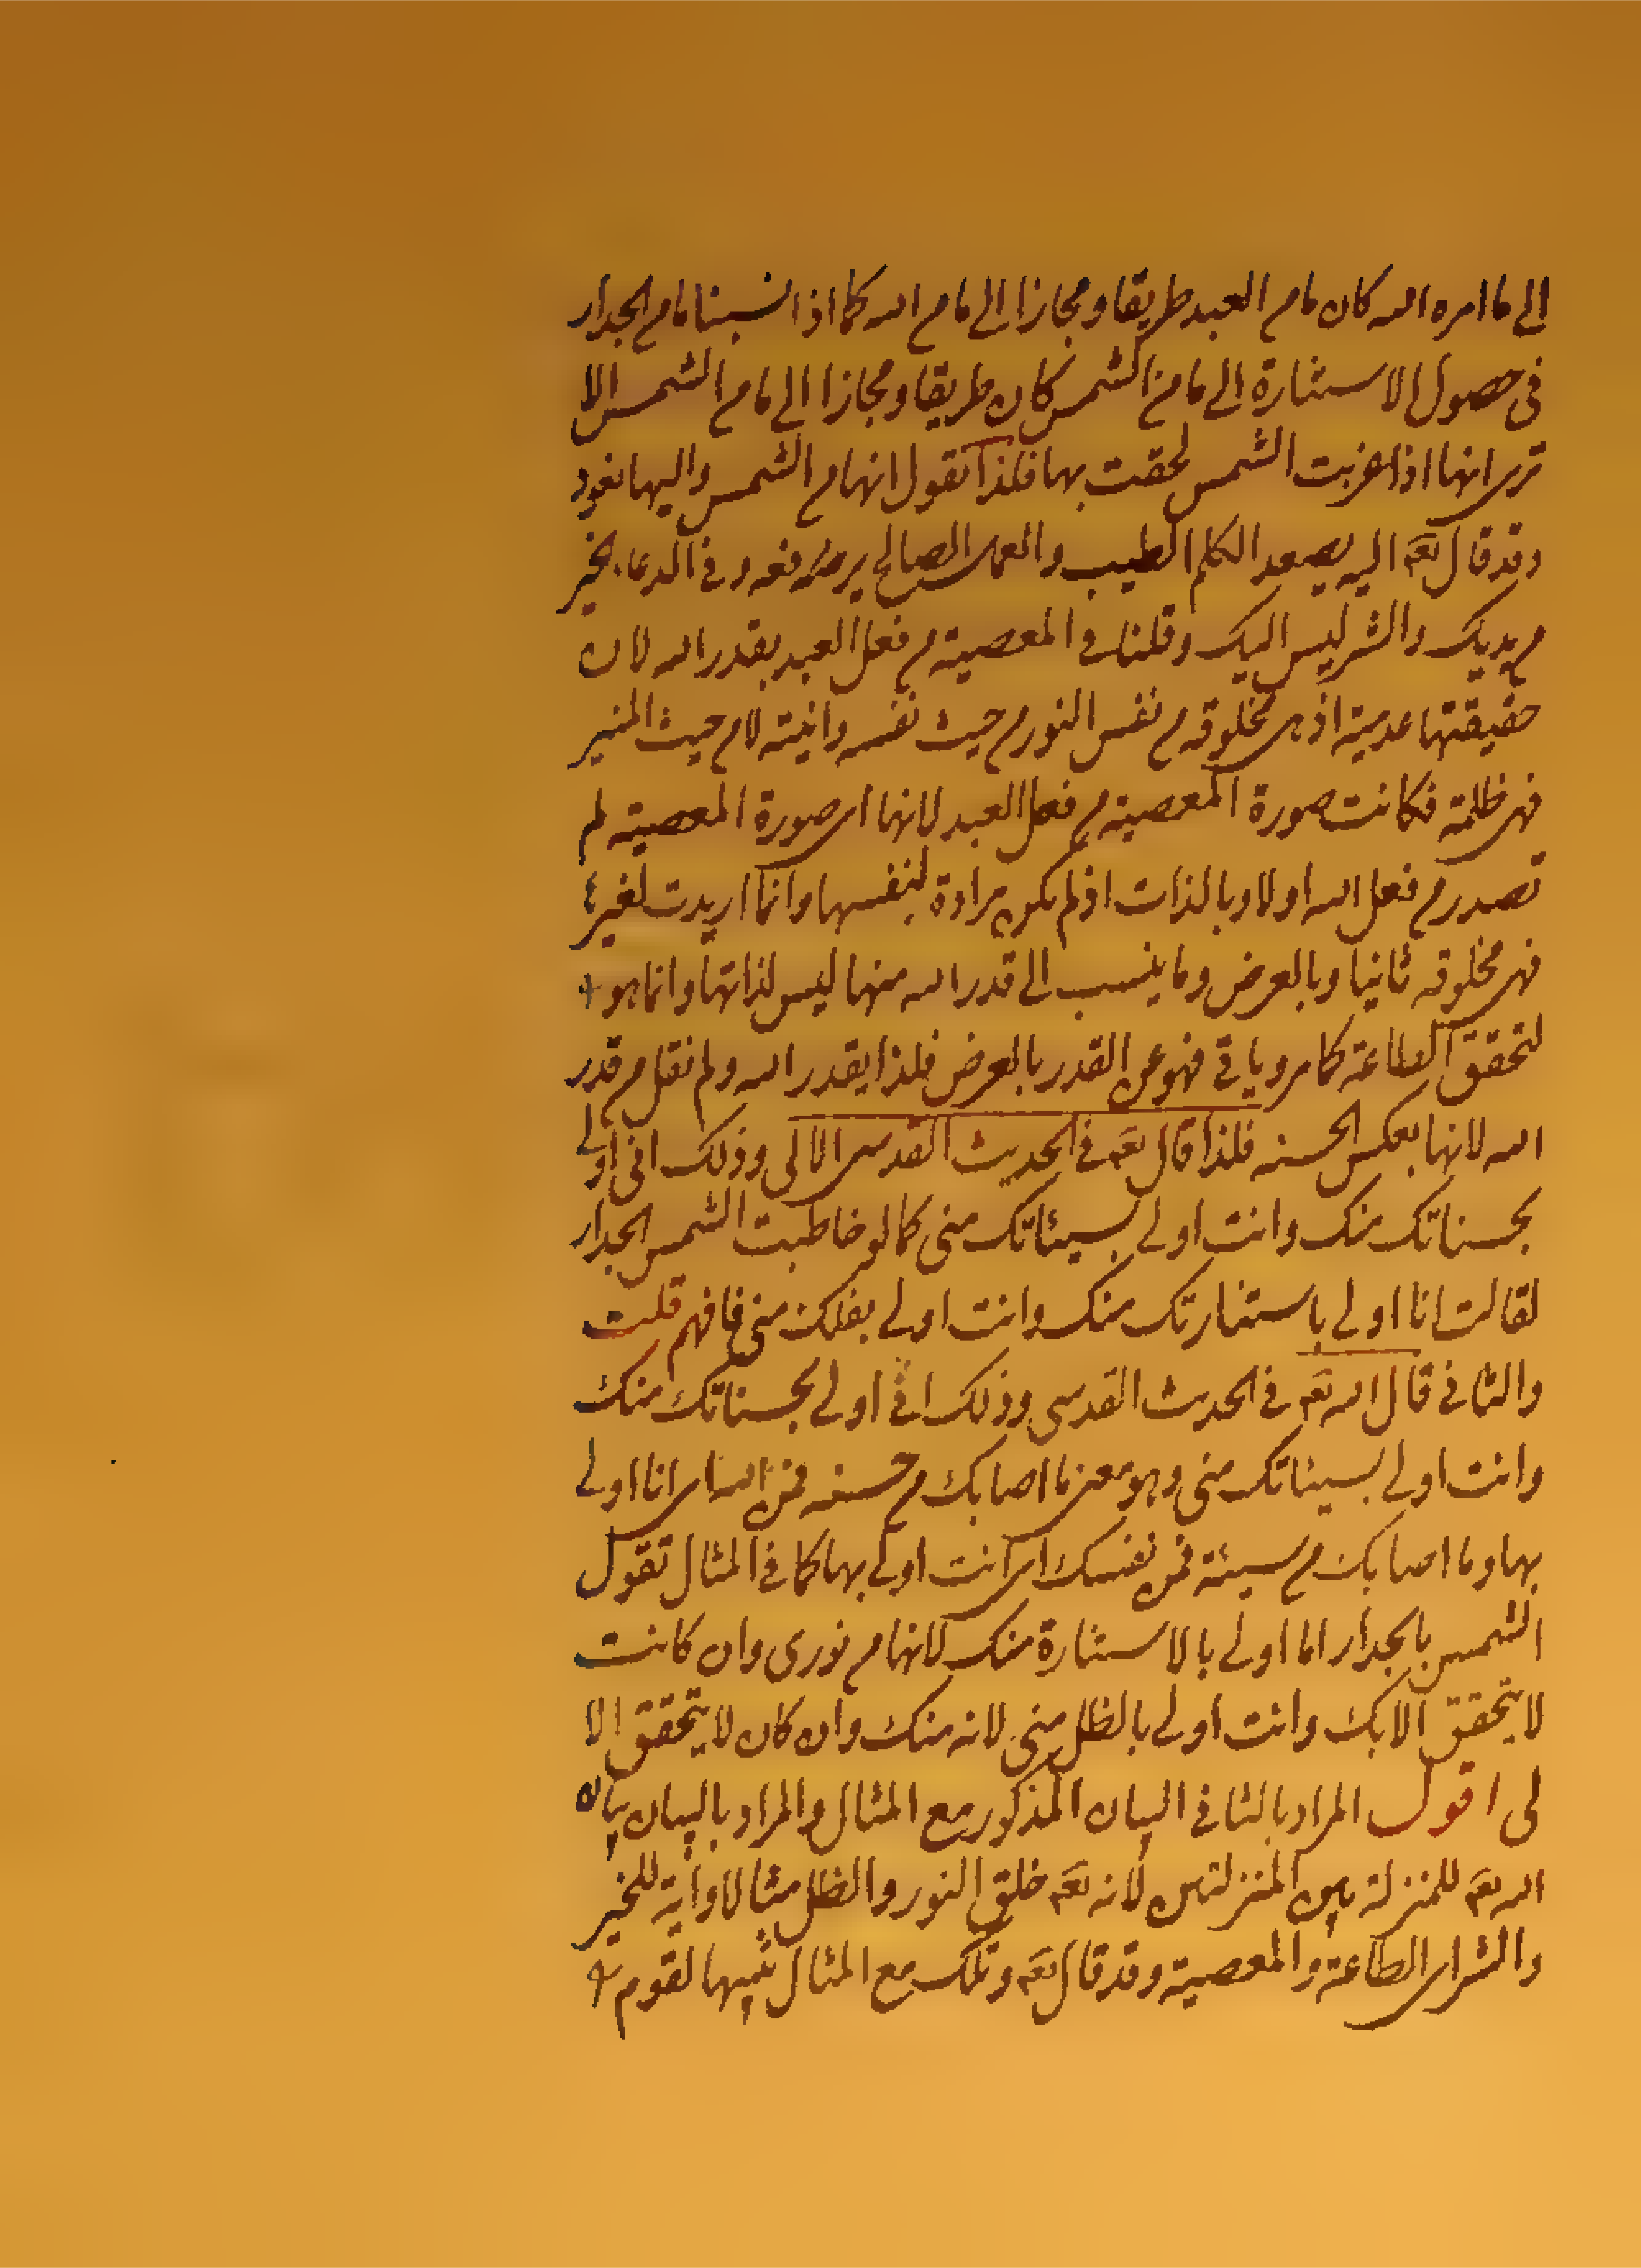 الى ما امره الله كان ما م العبد طريقا و مجازا الى ما م الله كما اذا نسبنا ما م الجدار
فى حصول الاستنارة الى ما م الشمس كان طريقا و مجازا الى ما م الشمس الا
ترى انها اذا غربت الشمس لحقت بها فلذا نقول انها م الشمس واليها تعود
وقد قال تعه اليه يصعد الكلم الطيب والعمل الصالح يرفعه و فى الدعاء الخير
م يديك والشر ليس اليك وقلنا فى المعصية م فعل العبد بقدر الله لان
حقيقتها عدمية اذ هى مخلوقه م نفس النور م حيث نفسه وانيته لا م حيث المنير
فهى ظلمة فكانت صورة المعصية م فعل العبد لانها اى صورة المعصية لم
تصدر م فعل الله اولا و بالذات اذ لم يكن مرادة لنفسها وانما اريدت لغيره
فهى مخلوقه ثانيا و بالعرض وما ينسب الى قدر الله منها ليس لذاتها وانما هو
لتحقق الطاعة كما مر و ياتى فهو من القدر بالعرض فلذا بقدر الله ولم نقل م قدر
الله لانها بعكس الحسنه فلذا قال تعه فى الحديث القدسى الاتى وذلك انى اولى
بحسناتك منك وانت اولى بسيئاتك منى كما لو خاطبت الشمس الجدار
لقالت انا اولى باستنارتك منك وانت اولى بظلك منى فافهم قلت
والثانى قال الله تعه فى الحديث القدسى وذلك انى اولى بحسناتك منك
وانت اولى بسيئاتك منى وهو معنى ما اصابك م حسنه فمن الله اى انا اولى
بها وما اصابك م سيئة فمن نفسك اى انت اولى بها كما فى المثال تقول
الشمس يا جدار انا اولى بالاستنارة منك لانها م نورى وان كانت
لا يتحقق الا بك وانت اولى بالظل منى لانه منك وان كان لا يتحقق الا
لى اقول المراد بالثانى البيان المذكور مع المثال والمراد بالبيان بيان
الله تعه للمنزلة بين المنزلتين لانه تعه خلق النور والظل مثالا و آية للخير
والشر اى الطاعة والمعصية وقد قال تعه وتلك مع المثال نبينها لقوم